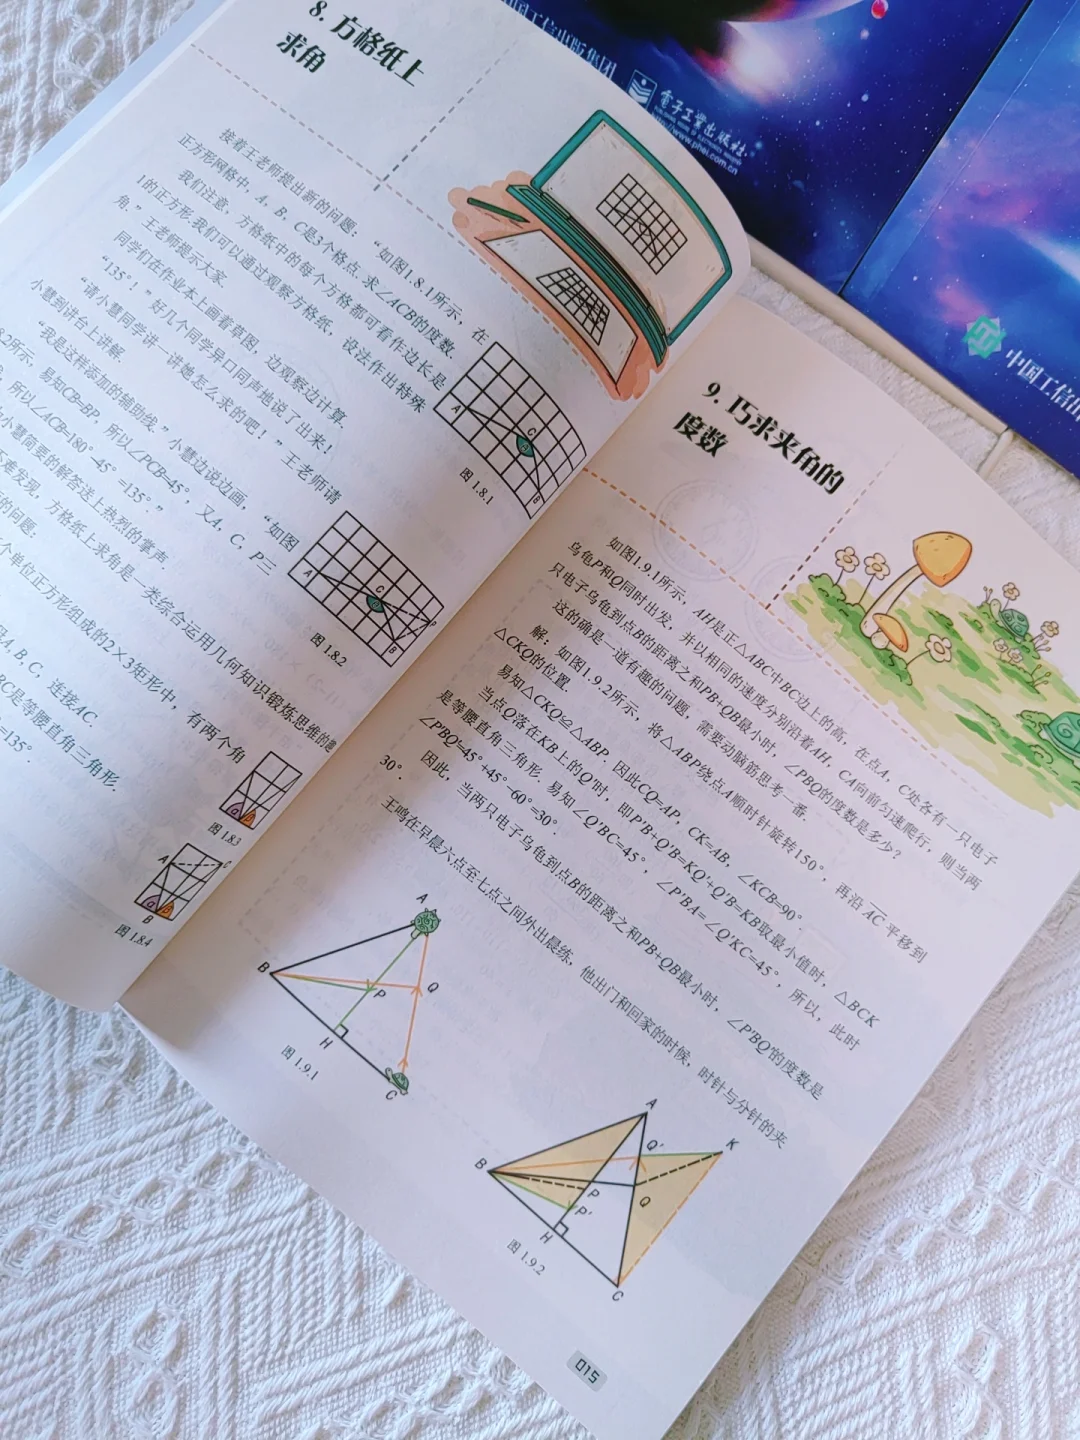 8. 方格纸上
求角
接着王老师提出新的问题:“如图1.8.1所示,在
正方形网格中,A,B,C是3个格点.求∠ACB的度数.
我们注意,方格纸中的每个方格都可看作边长是
1的正方形.我们可以通过观察方格纸,设法作出特殊
角.”王老师提示大家.
同学们在作业本上画着草图,边观察边计算.
“135°!”好几个同学异口同声地说了出来!
“请小慧同学讲一讲她怎么求的吧!”王老师请
小慧到讲台上讲解.
“我是这样添加的辅助线.”小慧边说边画,“如图
所示,易知CB=BP,所以∠PCB=45°,又A,C,P三
所以∠ACB=180°-45°=135°.”
小慧简要的解答送上热烈的掌声.
不难发现,方格纸上求角是一类综合运用几何知识锻炼思维的
的问题:
个单位正方形组成的2×3矩形中,有两个角
A,B,C,连接AC.
BC是等腰直角三角形.
=135°.
A
C
B
图 1.8.1
A
C
P
B
图 1.8.2
图 1.8.3
A
C
B
图 1.8.4
9. 巧求夹角的
度数
如图1.9.1所示,AH是正△ABC中BC边上的高,在点A,C处各有一只电子
乌龟P和Q同时出发,并以相同的速度分别沿着AH,CA向前匀速爬行,则当两
只电子乌龟到点B的距离之和PB+QB最小时,∠PBQ的度数是多少?
这的确是一道有趣的问题,需要动脑筋思考一番.
解:如图1.9.2所示,将△ABP绕点A顺时针旋转150°,再沿AC平移到
△CKQ的位置.
易知△CKQ≌△ABP.因此CQ=AP,CK=AB,∠KCB=90°.
当点Q落在KB上的Q′时,即P′B+Q′B=KQ′+Q′B=KB取最小值时,△BCK
是等腰直角三角形.易知∠Q′BC=45°,∠P′BA=∠Q′KC=45°,所以,此时
∠PBQ′=45°+45°-60°=30°.
因此,当两只电子乌龟到点B的距离之和PB+QB最小时,∠P′BQ′的度数是
30°.
王鸣在早晨六点至七点之间外出晨练,他出门和回家的时候,时针与分针的夹
A
B
P
Q
H
C
图 1.9.1
A
Q′
K
B
P
Q
P′
H
C
图 1.9.2
015
電子工業出版社
www.phei.com.cn
中国工信出